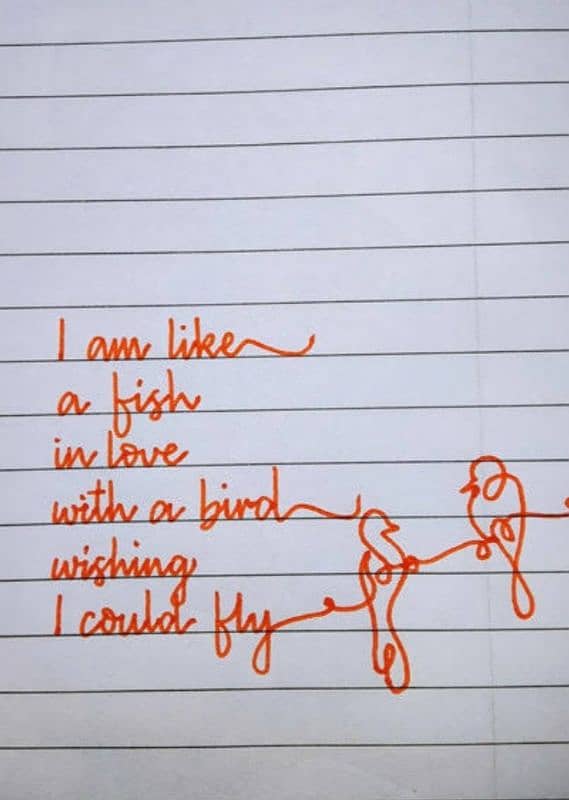 I am like
a fish
in love
with a bird
wishing
I could fly